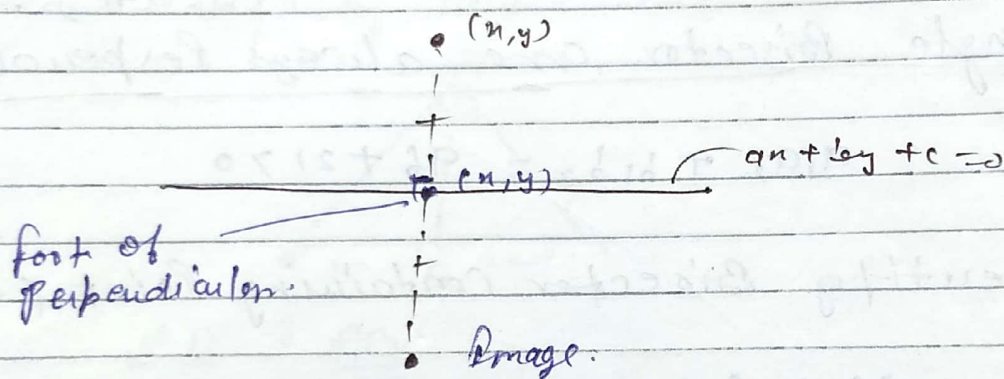 (x,y)
ax + by + c = 0
(x,y)
foot of
perpendicular.
Image.